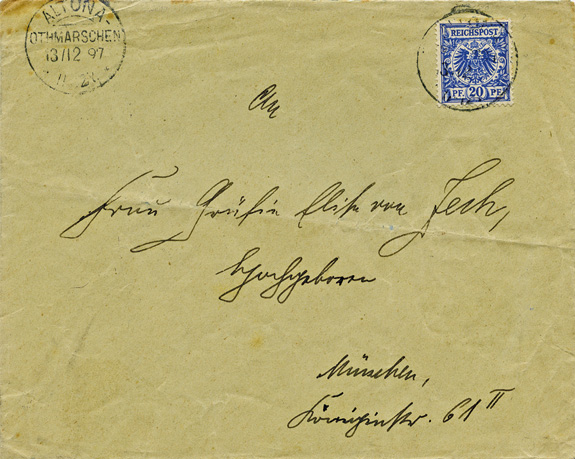 ALTONA-
OTHMARSCHEN
13/12 97
REICHSPOST
PF 20 PF
An
Frau Gräfin Elise von Zech,
Hochgeboren
München,
Königinstr. 61 II